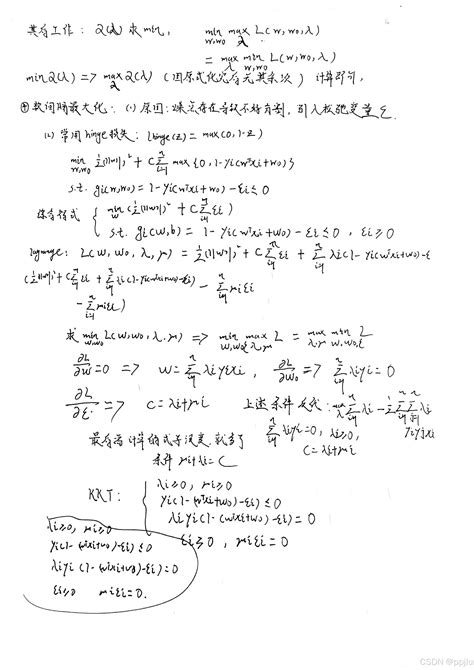 其有工作: Q(λ) 求 min, min_{w,w0} max_λ L(w, w0, λ)
= max_λ min_{w,w0} L(w, w0, λ)
min Q(λ) => max_λ Q(λ) 计算即可.
④ 软间隔最大化: (1) 原因: 引入松弛变量 ξ.
(2) 常用 hinge 损失: lhinge(z) = max(0, 1-z)
min_{w,w0} ½||w||² + C∑_{i=1}^n max{0, 1-yi(w^T xi+w0)}
s.t. gi(w,w0) = 1-yi(w^T xi+w0) - εi ≤ 0
{ min_w ½||w||² + C∑_{i=1}^n εi
s.t. gi(w,b) = 1-yi(w^T xi+w0) - εi ≤ 0, εi ≥ 0
L(w, w0, λ, μ) = ½||w||² + C∑_{i=1}^n εi + ∑_{i=1}^n λi(1-yi(w^T xi+w0)-ε
(½||w||² + C∑εi + ∑_{i=1}^n λi(1-yi(w^T xi+w0)-εi) - ∑_{i=1}^n μiεi
- ∑_{i=1}^n μiεi)
求 min_{w,w0} L(w, w0, λ, μ) => min_{w,w0,ξ} max_{λ,μ} L = max_{λ,μ} min_{w,w0,ξ} L
∂L/∂w = 0 => w = ∑_{i=1}^n λi yi xi, ∂L/∂w0 => ∑_{i=1}^n λi yi = 0
∂L/∂εi => C = λi+μi 上述条件反代: max_λ ∑_{i=1}^n λi - ½∑_{i=1}^n∑_{j=1}^n λi
∑_{i=1}^n λi yi = 0, λi ≥ 0, yi yj xi
C = λi+μi
最后 计算的 就多了
条件 μi+λi = C
KKT: { λi ≥ 0, μi ≥ 0
yi(1-(w^T xi+w0)-εi) ≤ 0
λi yi(1-(w^T xi+w0)-εi) = 0
εi ≥ 0, μiεi = 0
λi ≥ 0, μi ≥ 0
yi(1-(w^T xi+w0)-εi) ≤ 0
λi yi(1-(w^T xi+w0)-εi) = 0
εi ≥ 0 μiεi = 0.
CSDN @ppjlu